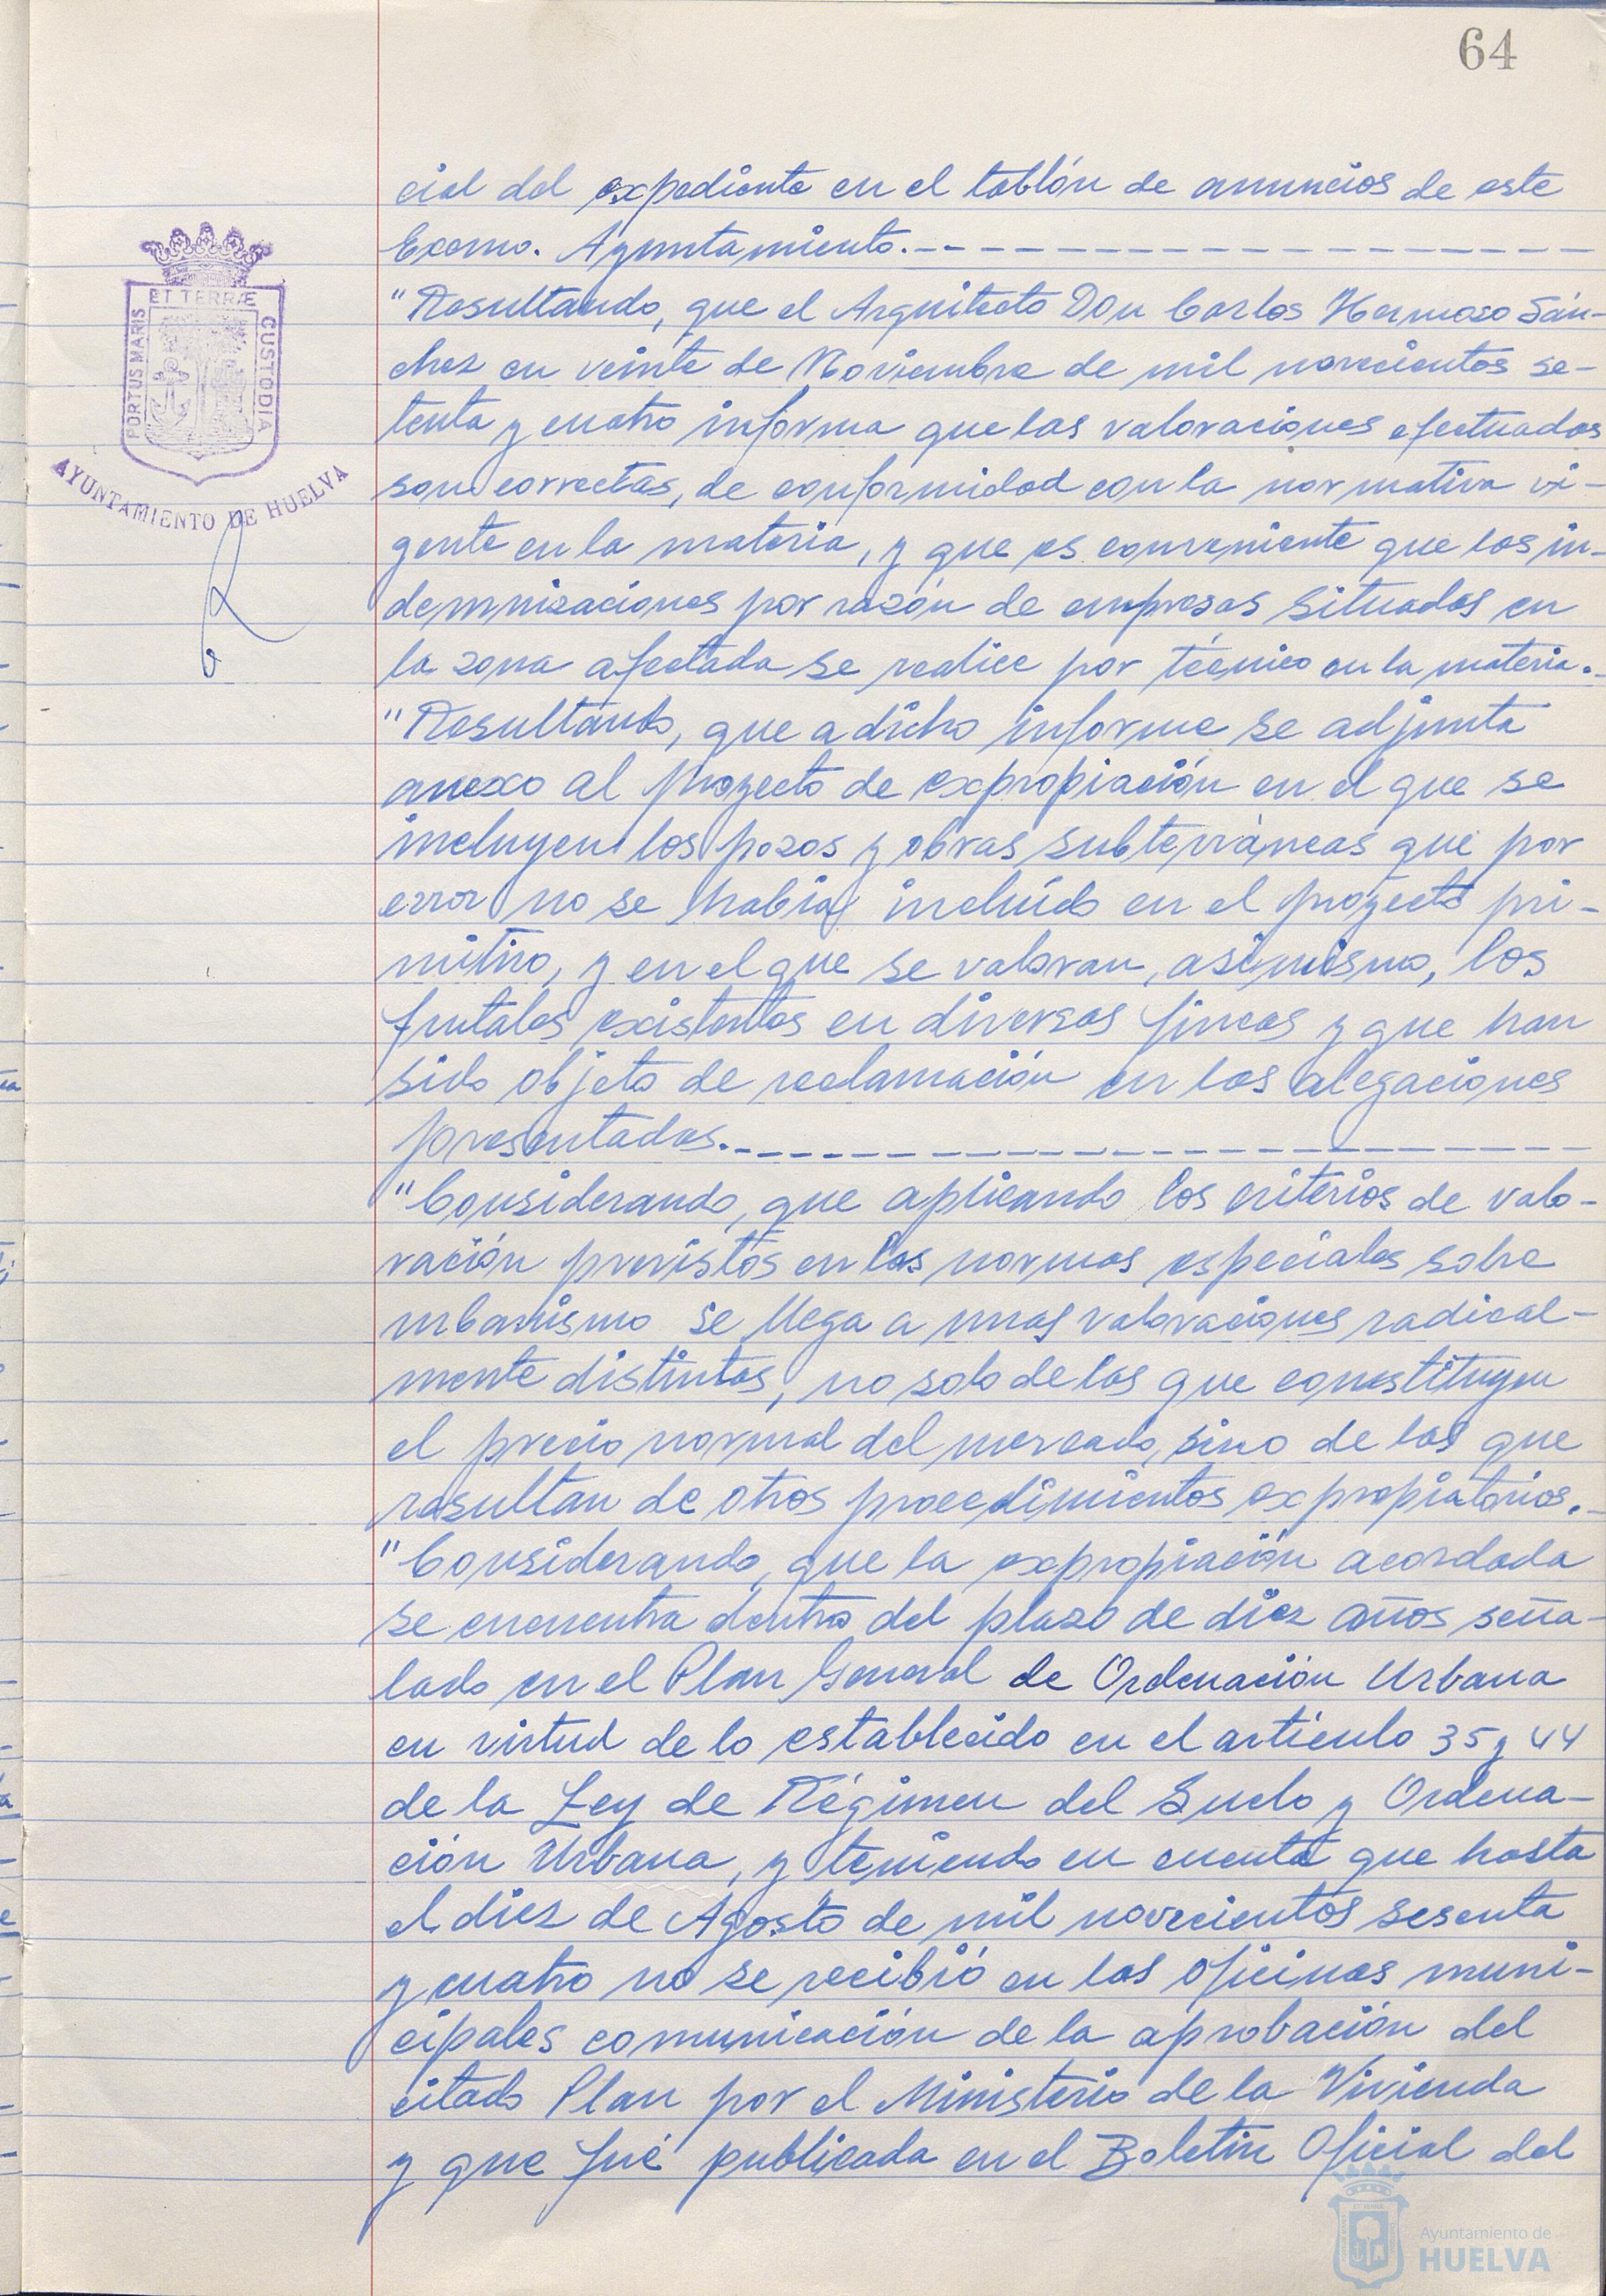 64
cial del expediente en el tablón de anuncios de este
Excmo. Ayuntamiento.-
"Resultando, que el Arquitecto Don Carlos Hermoso Sán-
chez en veinte de Noviembre de mil novecientos se-
tenta y cuatro informa que las valoraciones efectuadas
son correctas, de conformidad con la normativa vi-
gente en la materia, y que es conveniente que las in-
demnizaciones por razón de empresas situadas en
la zona afectada se realice por técnico en la materia.-
"Resultando, que a dicho informe se adjunta
anexo al proyecto de expropiación en el que se
incluyen los pozos y obras subterráneas que por
error no se había incluído en el proyecto pri-
mitivo, y en el que se valoran, asimismo, los
frutales existentes en diversas fincas y que han
sido objeto de reclamación en las alegaciones
presentadas.-
"Considerando, que aplicando los criterios de valo-
ración previstos en las normas especiales sobre
urbanismo se llega a unas valoraciones radical-
mente distintas, no solo de las que constituyen
el precio normal del mercado, sino de las que
resultan de otros procedimientos expropiatorios.-
"Considerando, que la expropiación acordada
se encuentra dentro del plazo de diez años seña-
lado en el Plan General de Ordenación Urbana
en virtud de lo establecido en el artículo 35 y 44
de la Ley de Régimen del Suelo y Ordena-
ción Urbana, y teniendo en cuenta que hasta
el diez de Agosto de mil novecientos sesenta
y cuatro no se recibió en las oficinas muni-
cipales comunicación de la aprobación del
citado Plan por el Ministerio de la Vivienda
y que fué publicada en el Boletín Oficial del
PORTUS MARIS ET TERRÆ CUSTODIA
AYUNTAMIENTO DE HUELVA
Ayuntamiento de
HUELVA